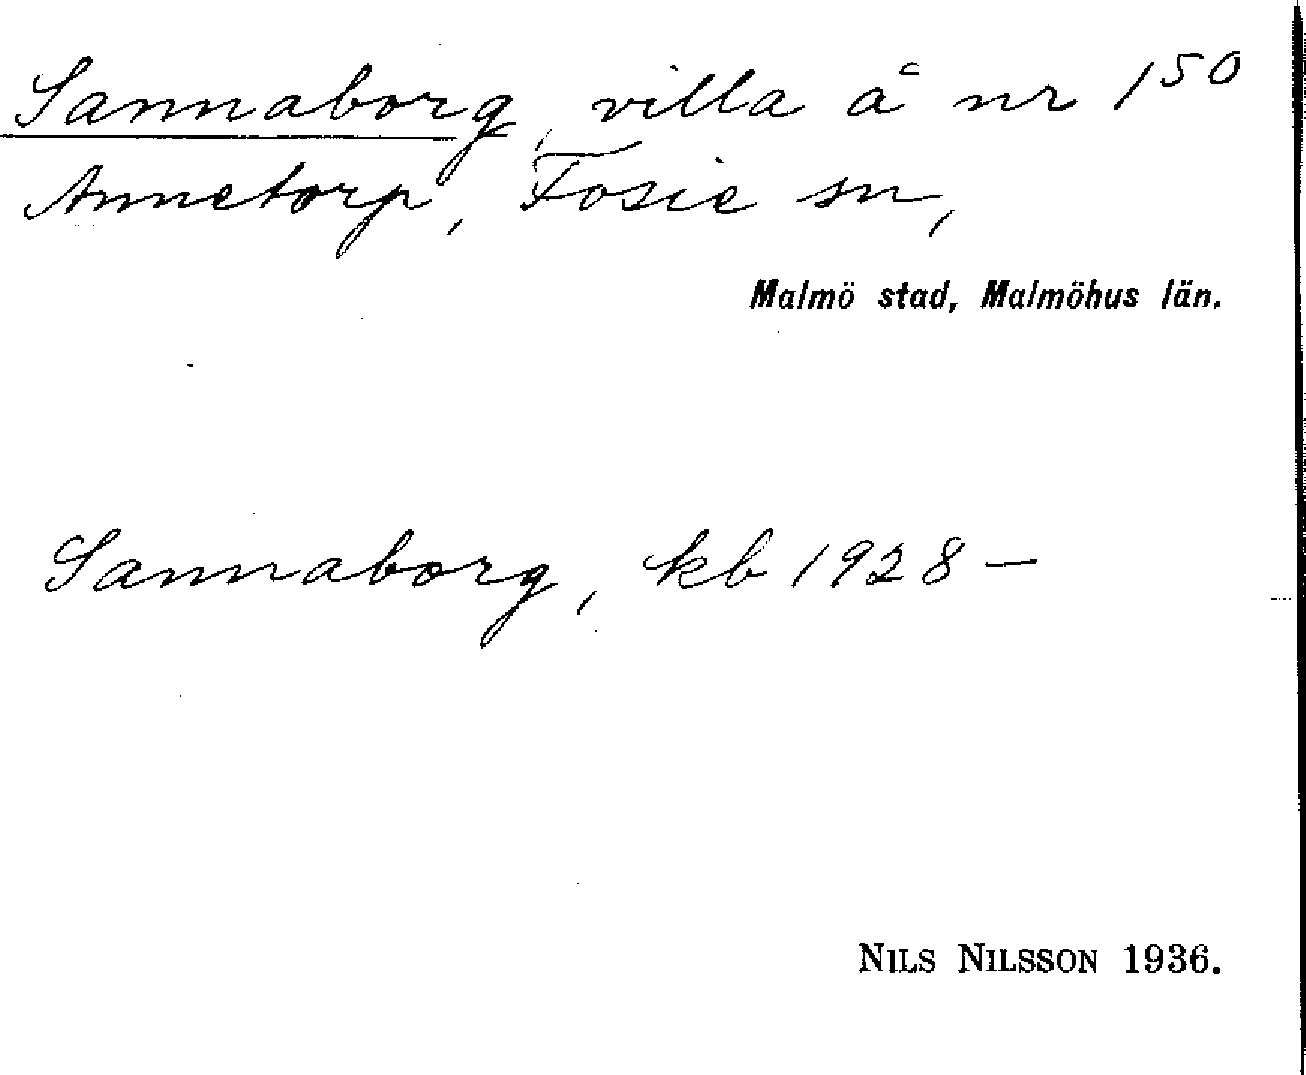 Sannaborg, villa å nr 150
Annetorp, Fosie sn,
Malmö stad, Malmöhus län.
Sannaborg, kb 1928 –
NILS NILSSON 1936.